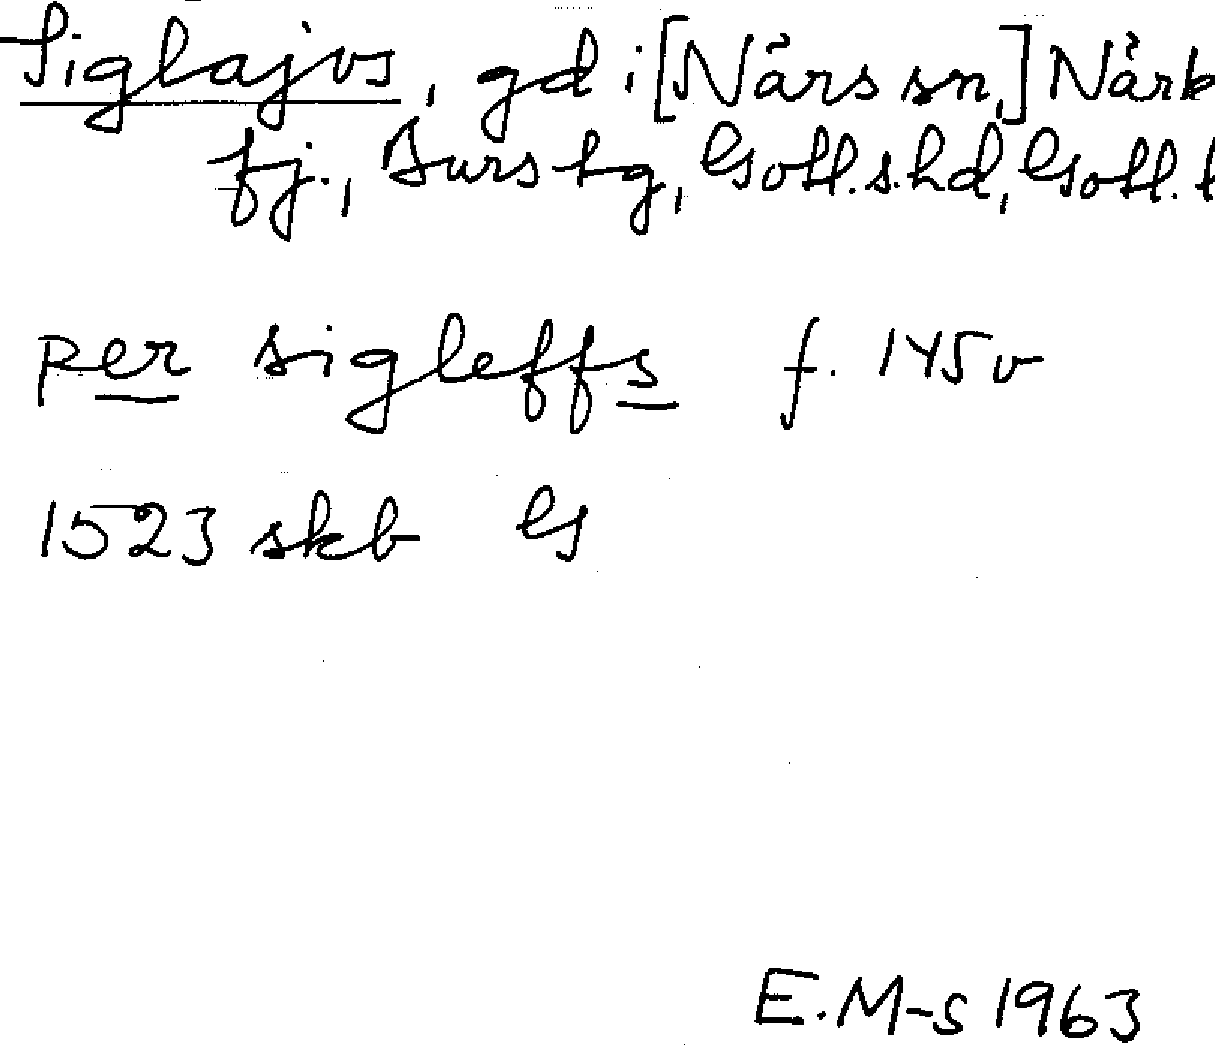 Siglajvs, gd i [Närs sn,] Närk
fj., Burs tg, Gotl.s.hd, Gotl. l
per sigleffs f. 145v
1523 skb G
E.M-s 1963